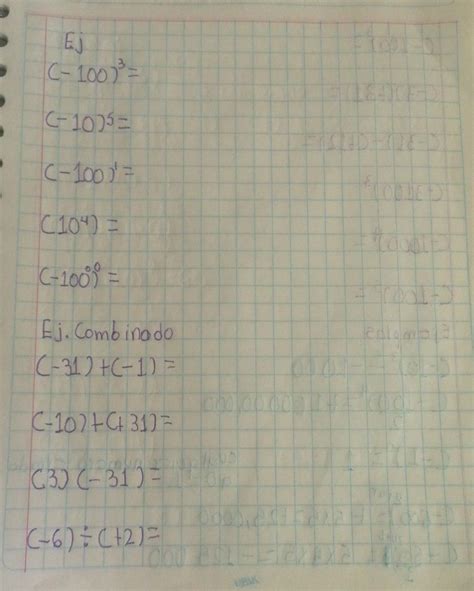 Ej
(-100)³=
(-10)⁵=
(-100)¹=
(10⁴) =
(-100⁰)⁰ =
Ej. Combinado
(-31)+(-1) =
(-10)+(+31)=
(3) (-31)=
(-6)÷(+2)=